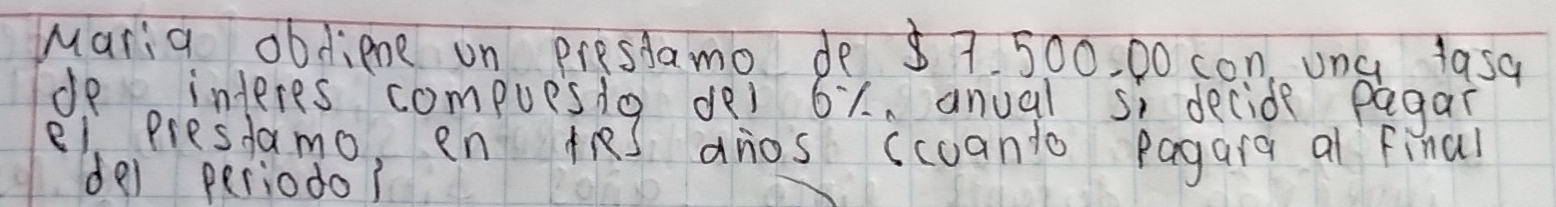 Maria obtiene un prestamo de $ 7.500.00 con una tasa
de interes compuesto del 6%. anual si decide pagar
el prestamo, en tres años ¿cuanto pagara al final
del periodo?